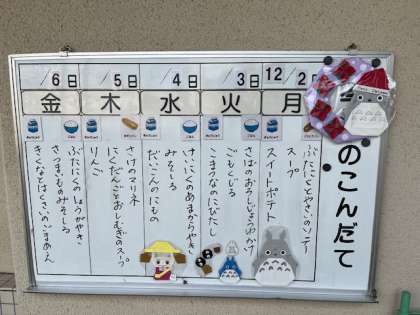 のこんだて
12/2日
月
ぶたにくとやさいのソテー
スープ
スイートポテト
/3日
火
さばのおろしじょうゆかけ
ごもくじる
こまつなのにびたし
/4日
水
けいにくのあまからやき
みそしる
だいこんのにもの
/5日
木
さけのマリネ
にくだんごとおしむぎのスープ
りんご
/6日
金
ぶたにくのしょうがやき
さつまいものみそしる
きくなとはくさいのごまあえ